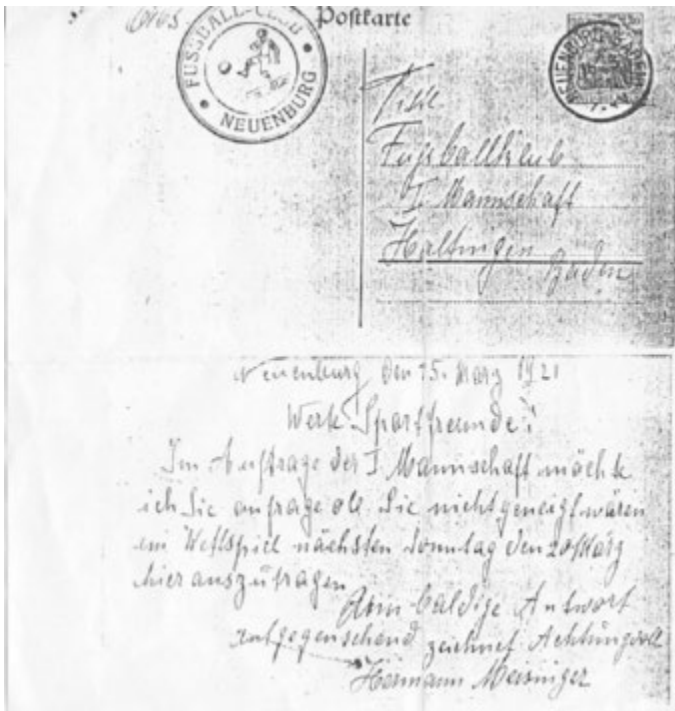 Postkarte
FUSSBALL-CLUB
NEUENBURG
Fussballklub
I Mannschaft
Haltingen
Baden
Neuenburg den 15. März 1921
Werte Sportfreunde!
Im Auftrage der I. Mannschaft möchte
ich Sie anfrage ob Sie nicht geneigt wären
ein Wettspiel nächsten Sonntag den 20 März
hier auszutragen
Ihrer baldige Antwort
entgegensehend zeichnet Achtungsvoll
Hermann Meisinger